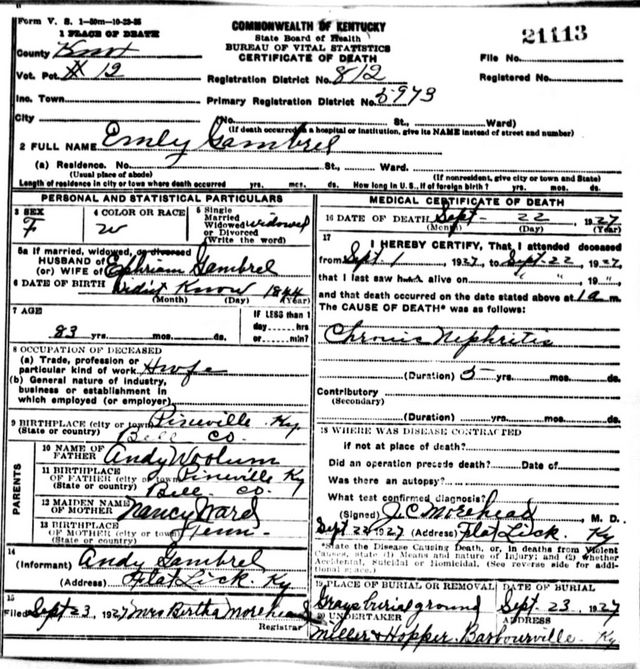 Form V. S. 1-50m-10-23-25
1 PLACE OF DEATH
COMMONWEALTH OF KENTUCKY
State Board of Health
BUREAU OF VITAL STATISTICS
CERTIFICATE OF DEATH
21113
County Knox
File No.
Vot. Pct # 12
Registration District No. 812
Registered No.
Inc. Town
Primary Registration District No. 5973
City
(No. St., Ward)
(If death occurred in a hospital or institution, give its NAME instead of street and number)
2 FULL NAME Emly Gambrel
(a) Residence. No. St., Ward.
(Usual place of abode) (If nonresident, give city or town and State)
Length of residence in city or town where death occurred yrs. mos. ds. How long in U. S., if of foreign birth? yrs. mos. ds.
PERSONAL AND STATISTICAL PARTICULARS
3 SEX F
4 COLOR OR RACE W
5 Single Married Widowed or Divorced (Write the word) widowed
5a If married, widowed, or divorced
HUSBAND of
(or) WIFE of Ephriam Gambrel
6 DATE OF BIRTH didnt Know 1844
(Month) (Day) (Year)
7 AGE
83 yrs. mos. ds.
IF LESS than 1 day----hrs or------min?
8 OCCUPATION OF DECEASED
(a) Trade, profession or particular kind of work Hwfe
(b) General nature of industry, business or establishment in which employed (or employer)
9 BIRTHPLACE (city or town) Pineville Ky
(State or country) Bell Co.
PARENTS
10 NAME OF FATHER Andy Woolum
11 BIRTHPLACE OF FATHER (city or town) Pineville Ky
(State or country) Bell Co.
12 MAIDEN NAME OF MOTHER Nancy Ward
13 BIRTHPLACE OF MOTHER (city or town)
(State or country) Tenn
14
(Informant) Andy Gambrel
(Address) Flat Lick. Ky
15
Filed Sept 23, 1927 Mrs Bertha Morehead
Registrar
MEDICAL CERTIFICATE OF DEATH
16 DATE OF DEATH Sept- 22, 1927
(Month) (Day) (Year)
17
I HEREBY CERTIFY, That I attended deceased
from Sept 1, 1927, to Sept 22, 1927,
that I last saw h alive on " ", 19 ",
and that death occurred on the date stated above at 1 a m.
The CAUSE OF DEATH* was as follows:
Chronic Nephritis
(Duration) 5 yrs. mos. ds.
Contributory
(Secondary)
(Duration) yrs. mos. ds.
18 WHERE WAS DISEASE CONTRACTED
if not at place of death?
Did an operation precede death? Date of
Was there an autopsy?
What test confirmed diagnosis?
(Signed) J. C. Morehead, M. D.
Sept 22 1927 (Address) Flat Lick. Ky
*State the Disease Causing Death, or, in deaths from Violent Causes, state (1) Means and nature of Injury; and (2) whether Accidental, Suicidal or Homicidal. (See reverse side for additional space.)
19 PLACE OF BURIAL OR REMOVAL
Grays burial ground
DATE OF BURIAL
Sept. 23. 1927
20 UNDERTAKER
Miller & Hopper.
ADDRESS
Barbourville. Ky